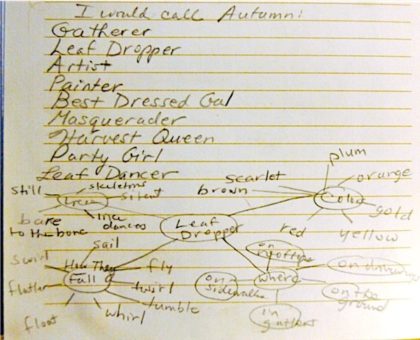 I would call Autumn:
Gatherer
Leaf Dropper
Artist
Painter
Best Dressed Gal
Masquerader
Harvest Queen
Party Girl
Leaf Dancer
plum
scarlet
orange
brown
Color
gold
red
yellow
still
skeletons
silent
trees
bare
to the bone
line
dances
Leaf
Dropper
sail
swirl
How They
Fall
fly
flutter
twirl
tumble
float
whirl
where
on
rooftops
on
sidewalks
in
gutters
on driveways
on the
ground